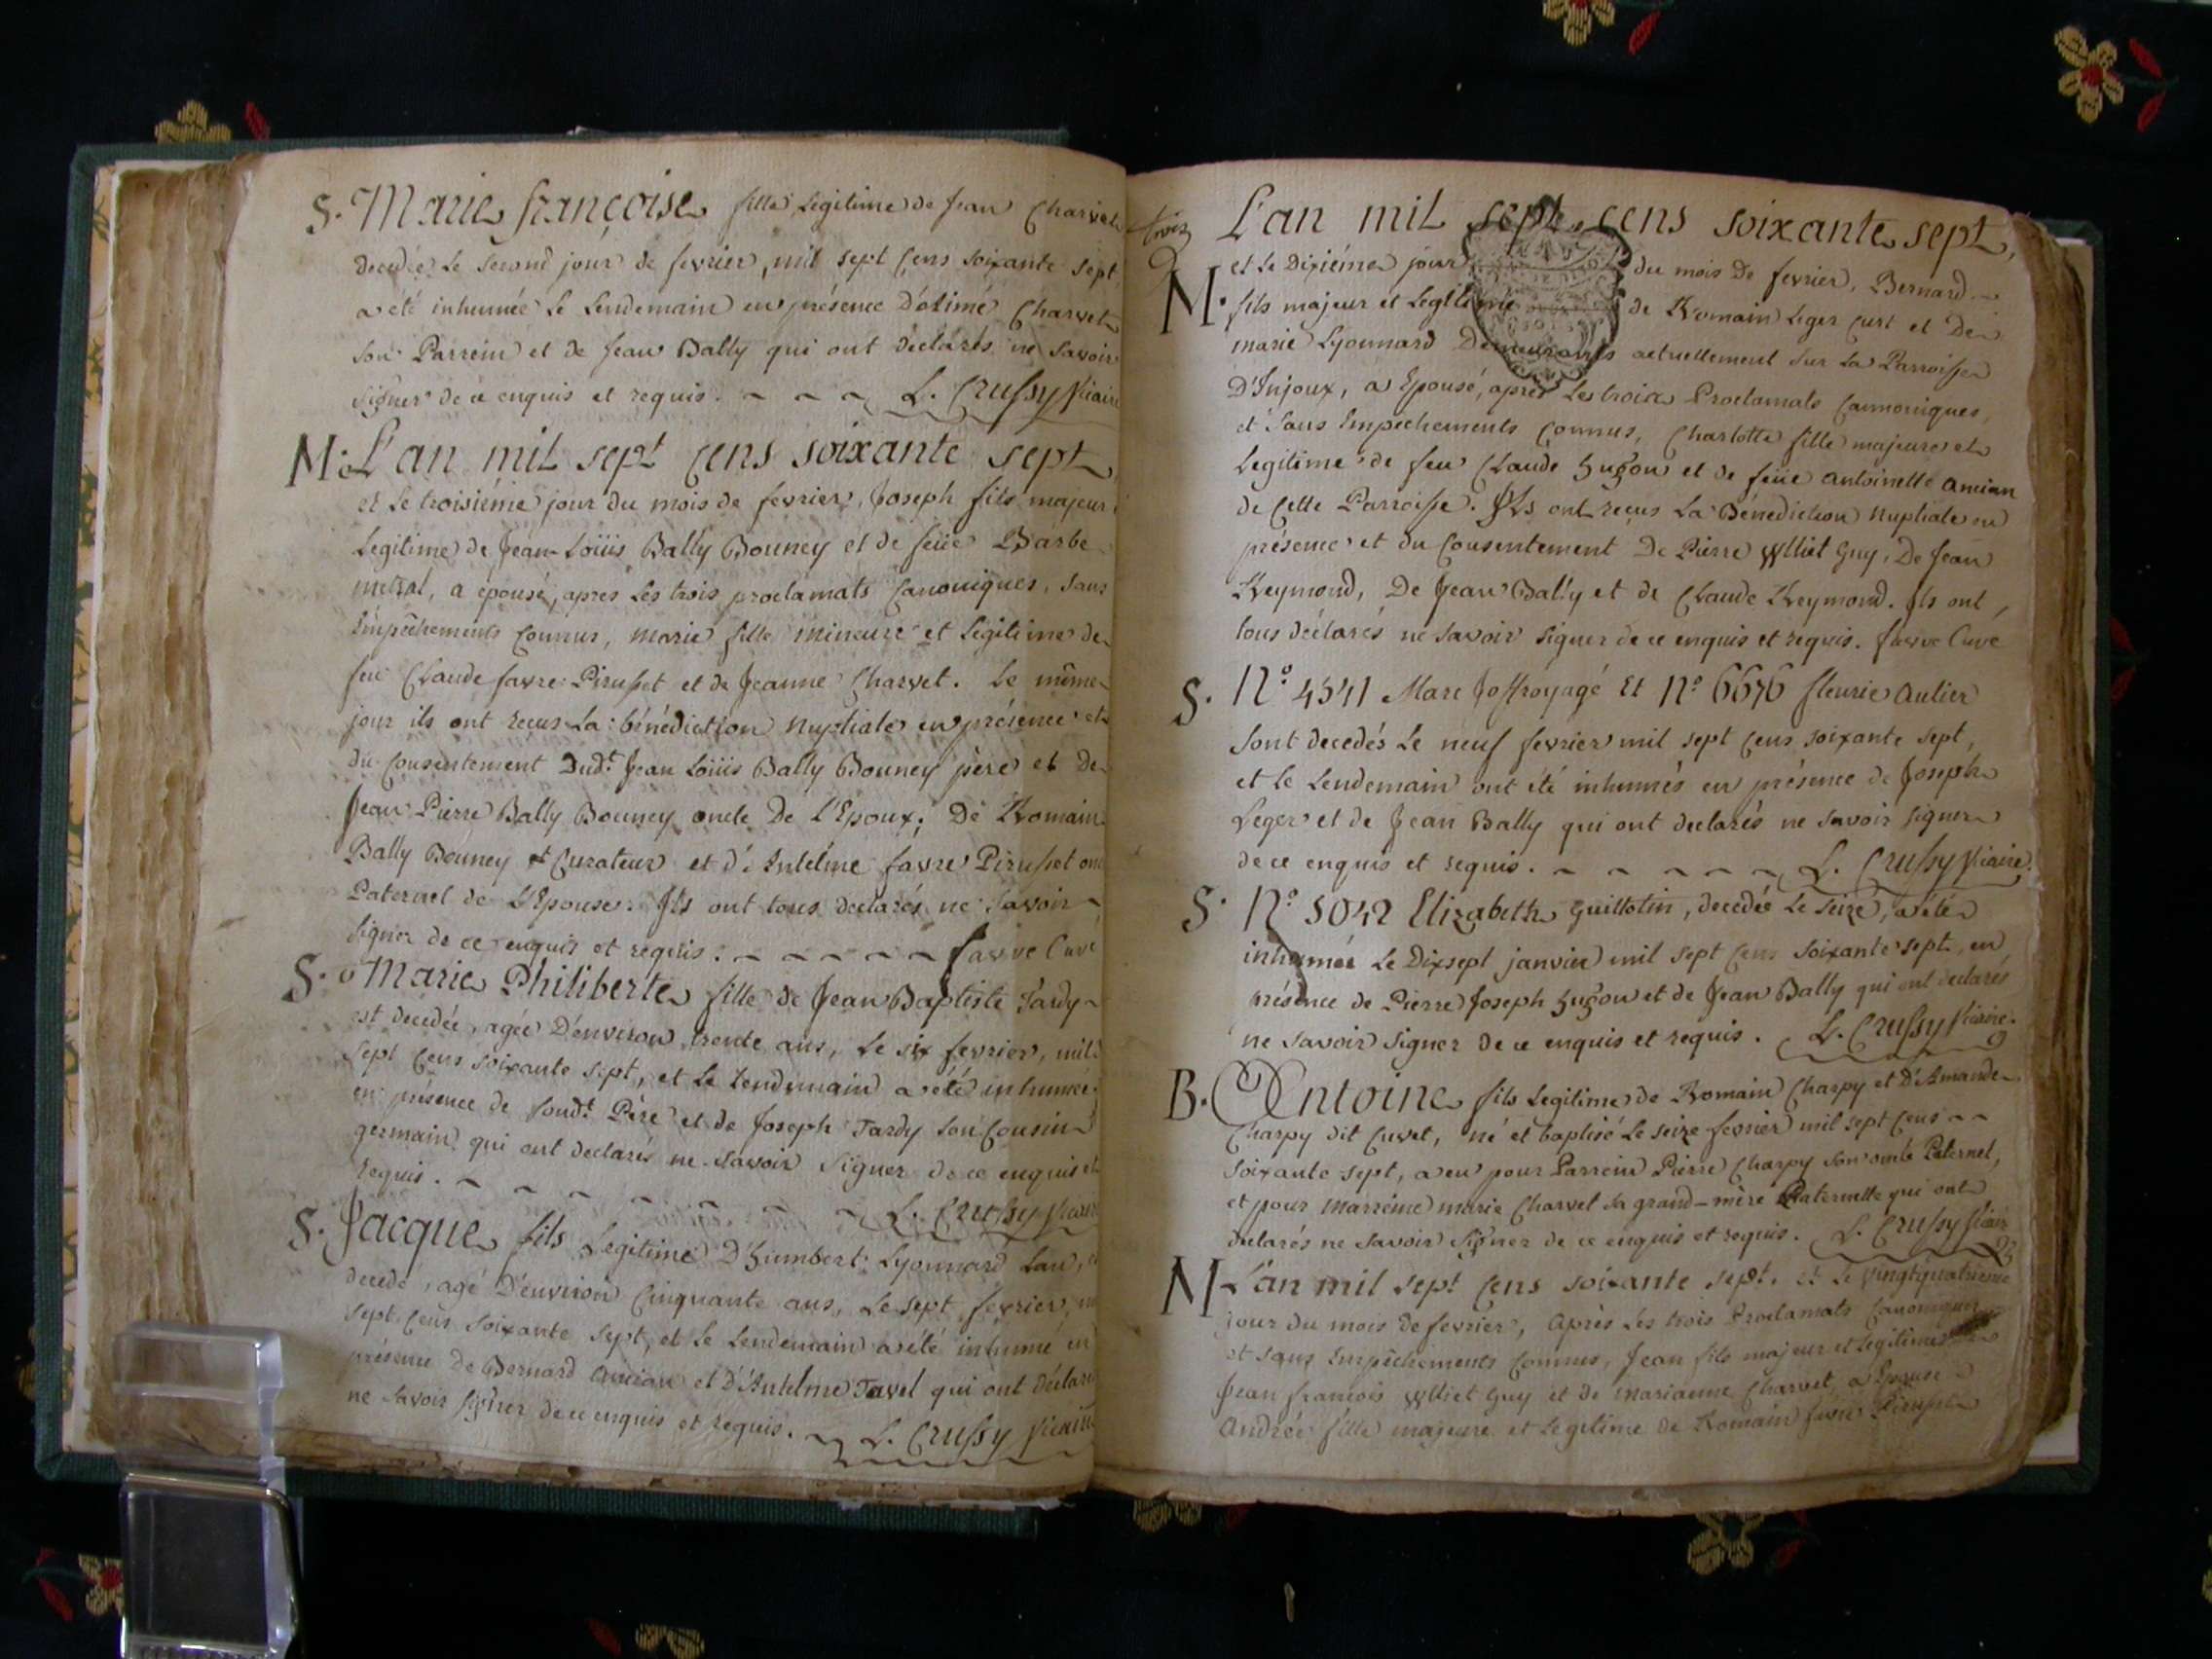 S. Marie françoise fille Legitime de Jean Charvet
decedée Le second jour de fevrier, mil sept cens soixante sept
a été inhumée Le Lendemain en présence d'Etimé Charvet
son Parrein et de Jean Bally qui ont déclarés ne savoir
signer de ce enquis et requis. L. Crussy Vicaire
M. L'an mil sept cens soixante sept
et Le troisiéme jour du mois de fevrier, Joseph fils majeur
Legitime de Jean-Loüis Bally Bouney et de feüe Barbe
metral, a épousé, apres Les trois proclamats Canoniques, sans
Empêchements connus, Marie fille mineure et Legitime de
feu Claude favre Pirusset et de Jeanne Charvet. Le même
jour ils ont reçus La bénédiction Nuptiale en présence et
du consentement Dud.t Jean Loüis Bally Bouney père et de
Jean Pierre Bally Bouney oncle De L'Epoux; De Romain
Bally Bouney Curateur et d'Antelme favre Pirusset
Paternel de L'Epouse. Ils ont tous declarés ne savoir
signer de ce enquis et requis. favre Curé
S. Marie Philiberte fille de Jean Baptiste Tardy
est decédée, agée D'environ trente ans, Le six fevrier, mil
sept cens soixante sept, et Le Lendemain a été inhumée
en présence de soud.t Père et de Joseph Tardy son Cousin
germain qui ont declarés ne savoir signer de ce enquis et
requis. L. Crussy Vicaire
S. Jacque fils Legitime D'humbert Lyonnard Lau,
decedé, agé D'environ Cinquante ans, Le sept fevrier,
sept cens soixante sept, et le Lendemain a été inhumé en
présence De Bernard Ancian et D'Antelme Tavel qui ont déclaré
ne savoir signer de ce enquis et requis. L. Crussy Vicaire
L'an mil sept cens soixante sept,
et Le Dixiéme jour du mois De fevrier, Bernard
M. fils majeur et Legitime de Romain Leger Curt et De
Marie Lyonnard Demeurants actuellement sur La Parroisse
D'Injoux, a Epousé, après Les trois Proclamats Cannoniques,
et sans Empêchements connus, Charlotte fille majeure et
Legitime de feu Claude hugon et de feüe Antoinette Ancian
de Cette Parroisse. Ils ont reçus La Bénediction Nuptiale en
présence et du Consentement De Pierre Wlliet Guy, De Jean
Reymond, De Jean Bally et de Claude Reymond. Ils ont
tous déclarés ne savoir signer de ce enquis et requis. favre Curé
S. N.o 4541 Marc Joffroy agé Et N.o 6676 fleurie Aulier
sont decedés Le neuf fevrier mil sept cens soixante sept,
et Le Lendemain ont été inhumés en présence de Joseph
Leger et de Jean Bally qui ont declarés ne savoir signer
de ce enquis et requis. L. Crussy Vicaire.
S. N.o 5042 Elizabeth Guillotin, decedée Le seize, a été
inhumée Le Dixsept janvier mil sept cens soixante sept, en
présence de Pierre Joseph hugon et de Jean Bally qui ont declarés
ne savoir signer de ce enquis et requis. L. Crussy Vicaire.
B. Antoine fils Legitime de Romain Charpy et D'Amande
Charpy dit Cuvet, né et baptisé Le seize fevrier mil sept cens
soixante sept, a eu pour Parrein Pierre Charpy son oncle Paternel,
et pour Marreine marie Charvet sa grand-mère Paternelle qui ont
declarés ne savoir signer de ce enquis et requis. L. Crussy Vicaire
M. L'an mil sept cens soixante sept, et Le vingtquatrieme
jour du mois de fevrier, Après Les trois Proclamats Canoniques
et sans Empêchements Connus, Jean fils majeur et Legitime
Jean françois Wlliet Guy et de Marianne Charvet, a Epousé
Andrée fille majeure et Legitime de Romain favre Pirusset